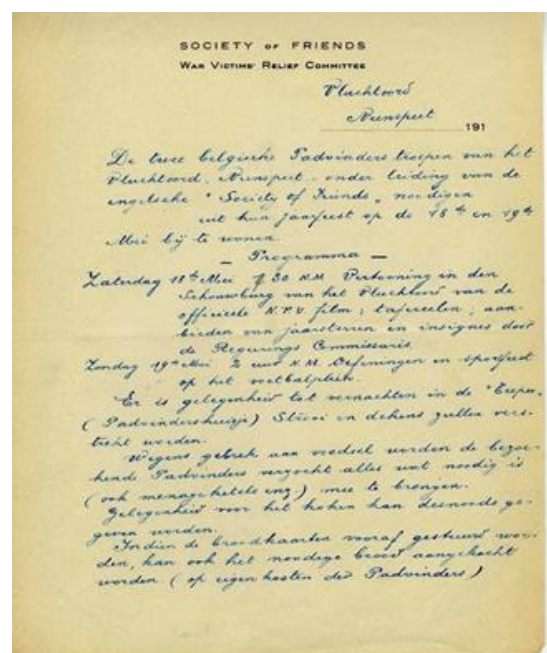 SOCIETY OF FRIENDS
WAR VICTIMS' RELIEF COMMITTEE
Vluchtoord
Nunspeet 191
De twee belgische Padvinders troepen van het
Vluchtoord, Nunspeet onder leiding van de
engelsche "Society of Friends" noodigen
uit hun jaarfeest op de 18de en 19de
Mei bij te wonen.
— Programma —
Zaterdag 18de Mei 7 30 N.M. Vertooning in den
Schouwburg van het Vluchtoord van de
officieele N.P.V. film; tafereelen; aan-
bieden van jaarsterren en insignes door
de Regeerings Commissaris
Zondag 19de Mei 2 uur N.M. Oefeningen en sportfeest
op het voetbalplein.
Er is gelegenheid tot vernachten in de
(Padvindershuisje) Stroo en dekens zullen vers-
trekt worden.
Wegens gebrek aan voedsel worden de bezoe-
kende Padvinders verzocht alles wat noodig is
(ook menageketels enz) mee te brengen.
Gelegenheid voor het koken kan desnoods ge-
geven worden.
Indien de broodkaarten vooraf gestuurd wor-
den, kan ook het noodige brood aangekocht
worden (op eigen kosten der Padvinders)